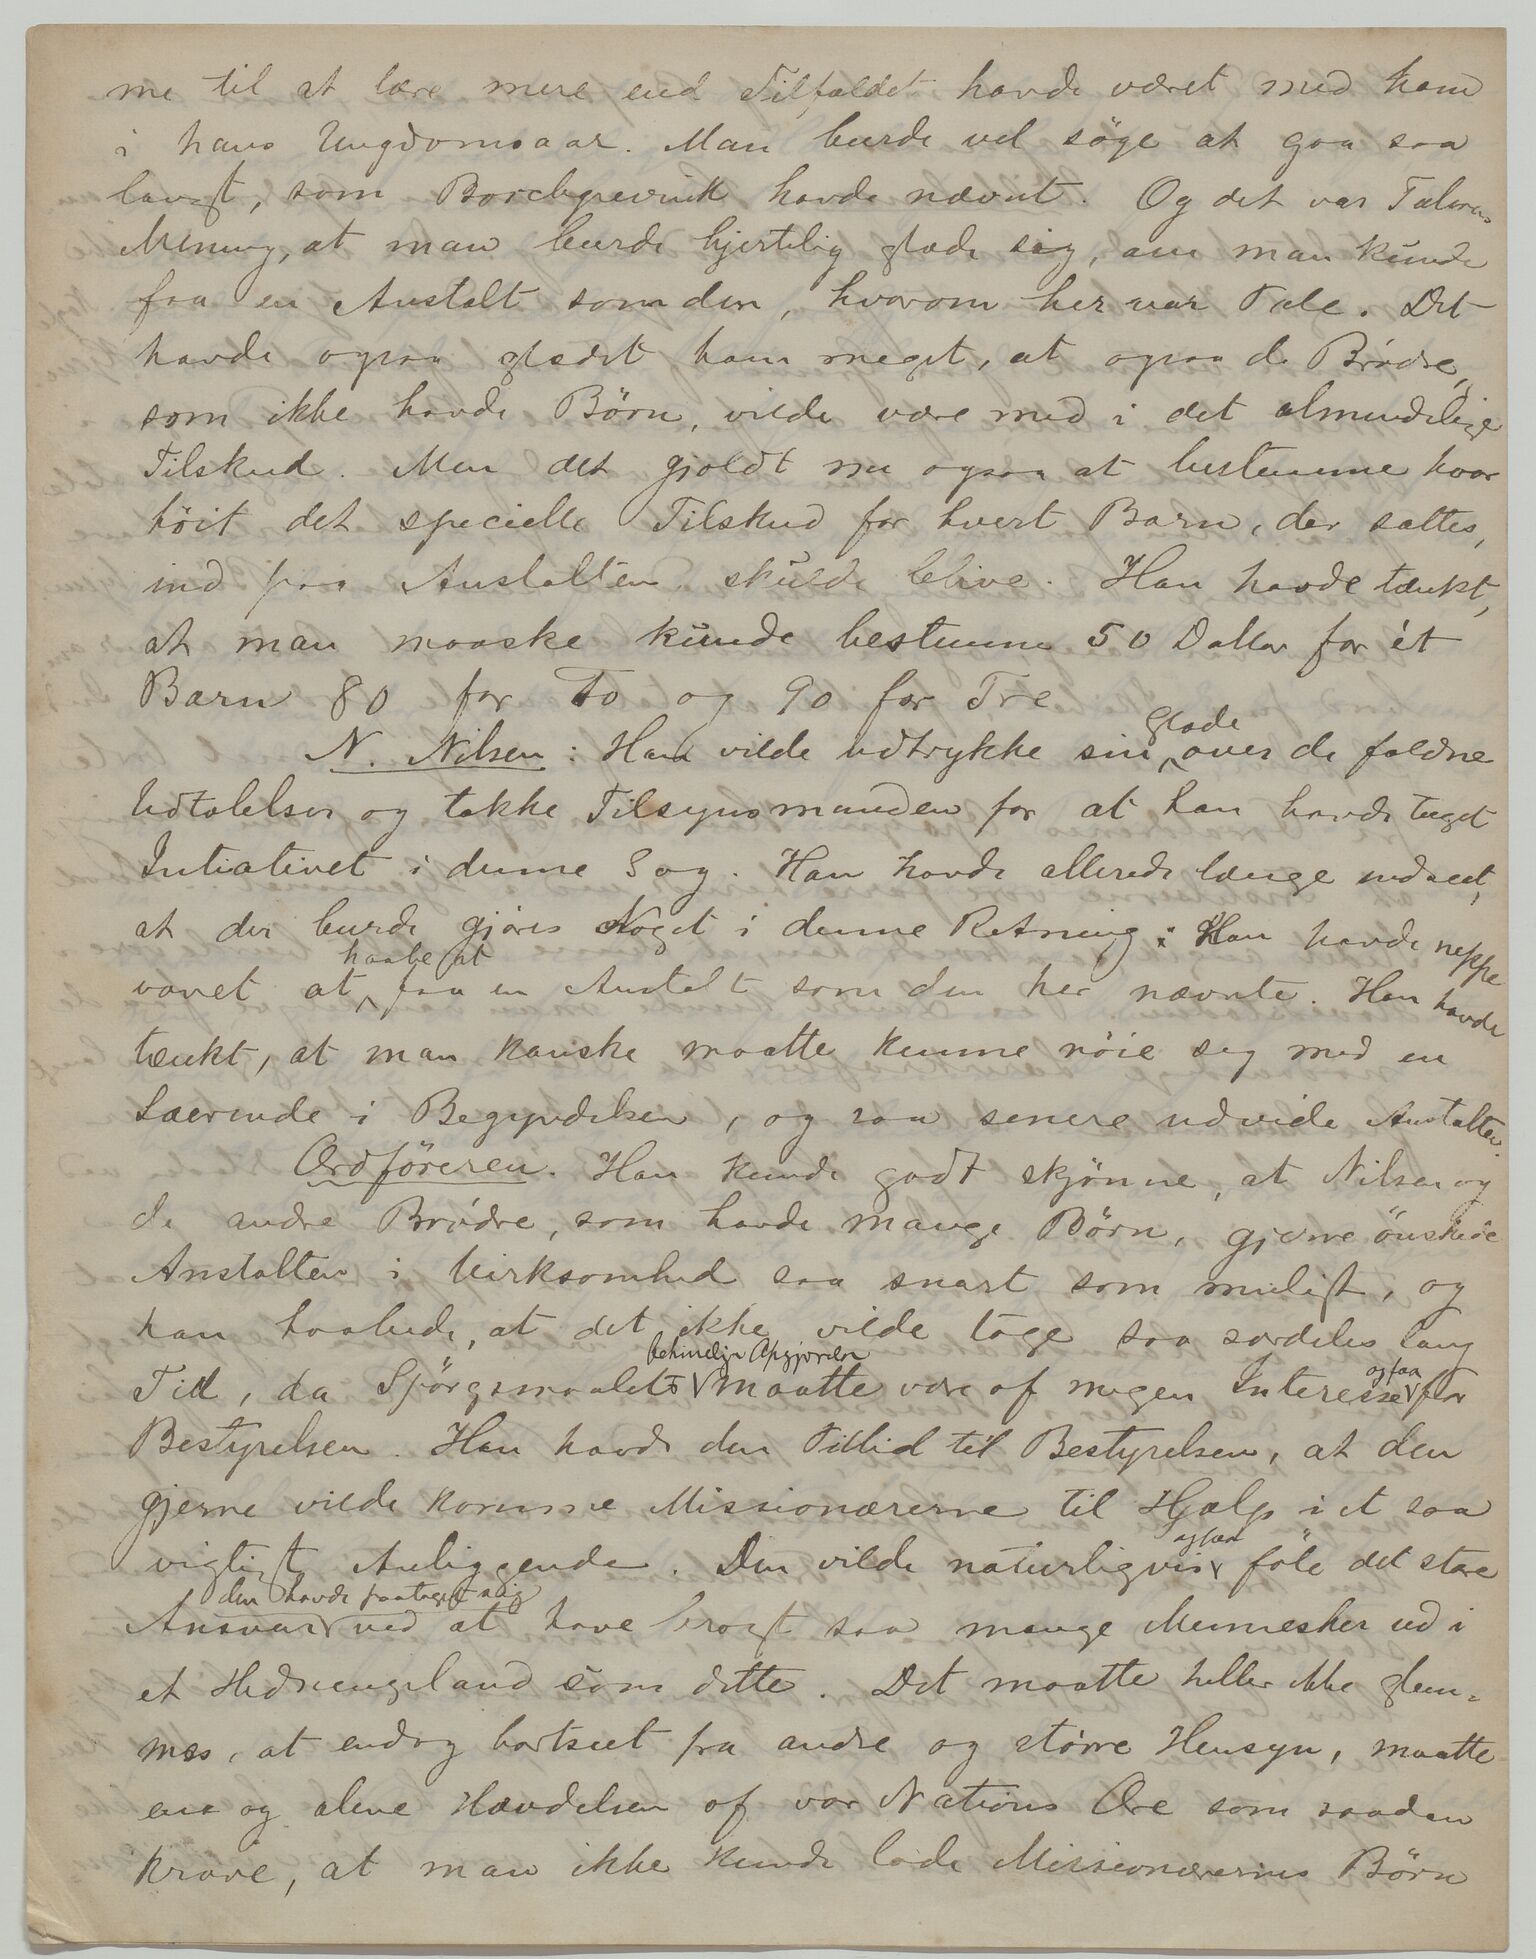 me til at lære mere end Tilfældet havde været med ham
i hans Ungdomsaar. Man burde vel söge at gaa saa
langt, som Borchgrevink havde nævnt. Og det var Talerens
Mening, at man burde hjertelig glæde sig, om man kunde
faa en Anstalt som den, hvorom her var Tale. Det
havde ogsaa glædet ham meget, at ogsaa de Brødre,
som ikke havde Börn, vilde være med i det almindelige
Tilskud. Men det gjaldt nu ogsaa at bestemme hvor
höit det specielle Tilskud for hvert Barn, der sattes,
ind paa Anstalten skulde blive. Han havde tænkt,
at man maaske kunde bestemme 50 Dollar for ét
Barn 80 for To og 90 for Tre
N. Nilsen: Han vilde udtrykke sin Glæde over de faldne
Udtalelser og takke Tilsynsmanden for at han havde taget
Intiativet i denne Sag. Han havde allerede længe indseet,
at der burde gjöres Noget i denne Retning; Han havde neppe
vovet at haabe at faa en Anstalt som den her nævnte. Han havde
tænkt, at man kanske maatte kunne nöie sig med en
Lærerinde i Begyndelsen, og saa senere udvide Anstalten.
Ordföreren. Han kunde godt skjönne, at Nilsen og
de andre Brødre, som havde mange Börn, gjerne önskede
Anstalten i Virksomhed saa snart som muligt, og
han haabede, at det ikke vilde tage saa særdeles lang
Tid, da Spörgsmaalets behindige Afgjörelse maatte være af megen Interesse ogsaa for
Bestyrelsen. Han havde den Tillid til Bestyrelsen, at den
gjerne vilde komme Missionærerne til Hjælp i et saa
vigtigt Anliggende. Den vilde naturligvis ogsaa föle det store
Ansvar den havde paataget sig ved at have bragt saa mange Mennesker ud i
et Hedningeland som dette. Det maatte heller ikke glem-
mes, at endog bortseet fra andre og större Hensyn, maatte
ene og alene Hævdelsen af vor Nations Ære som saadan
kræve, at man ikke kunde lade Missionærernes Börn